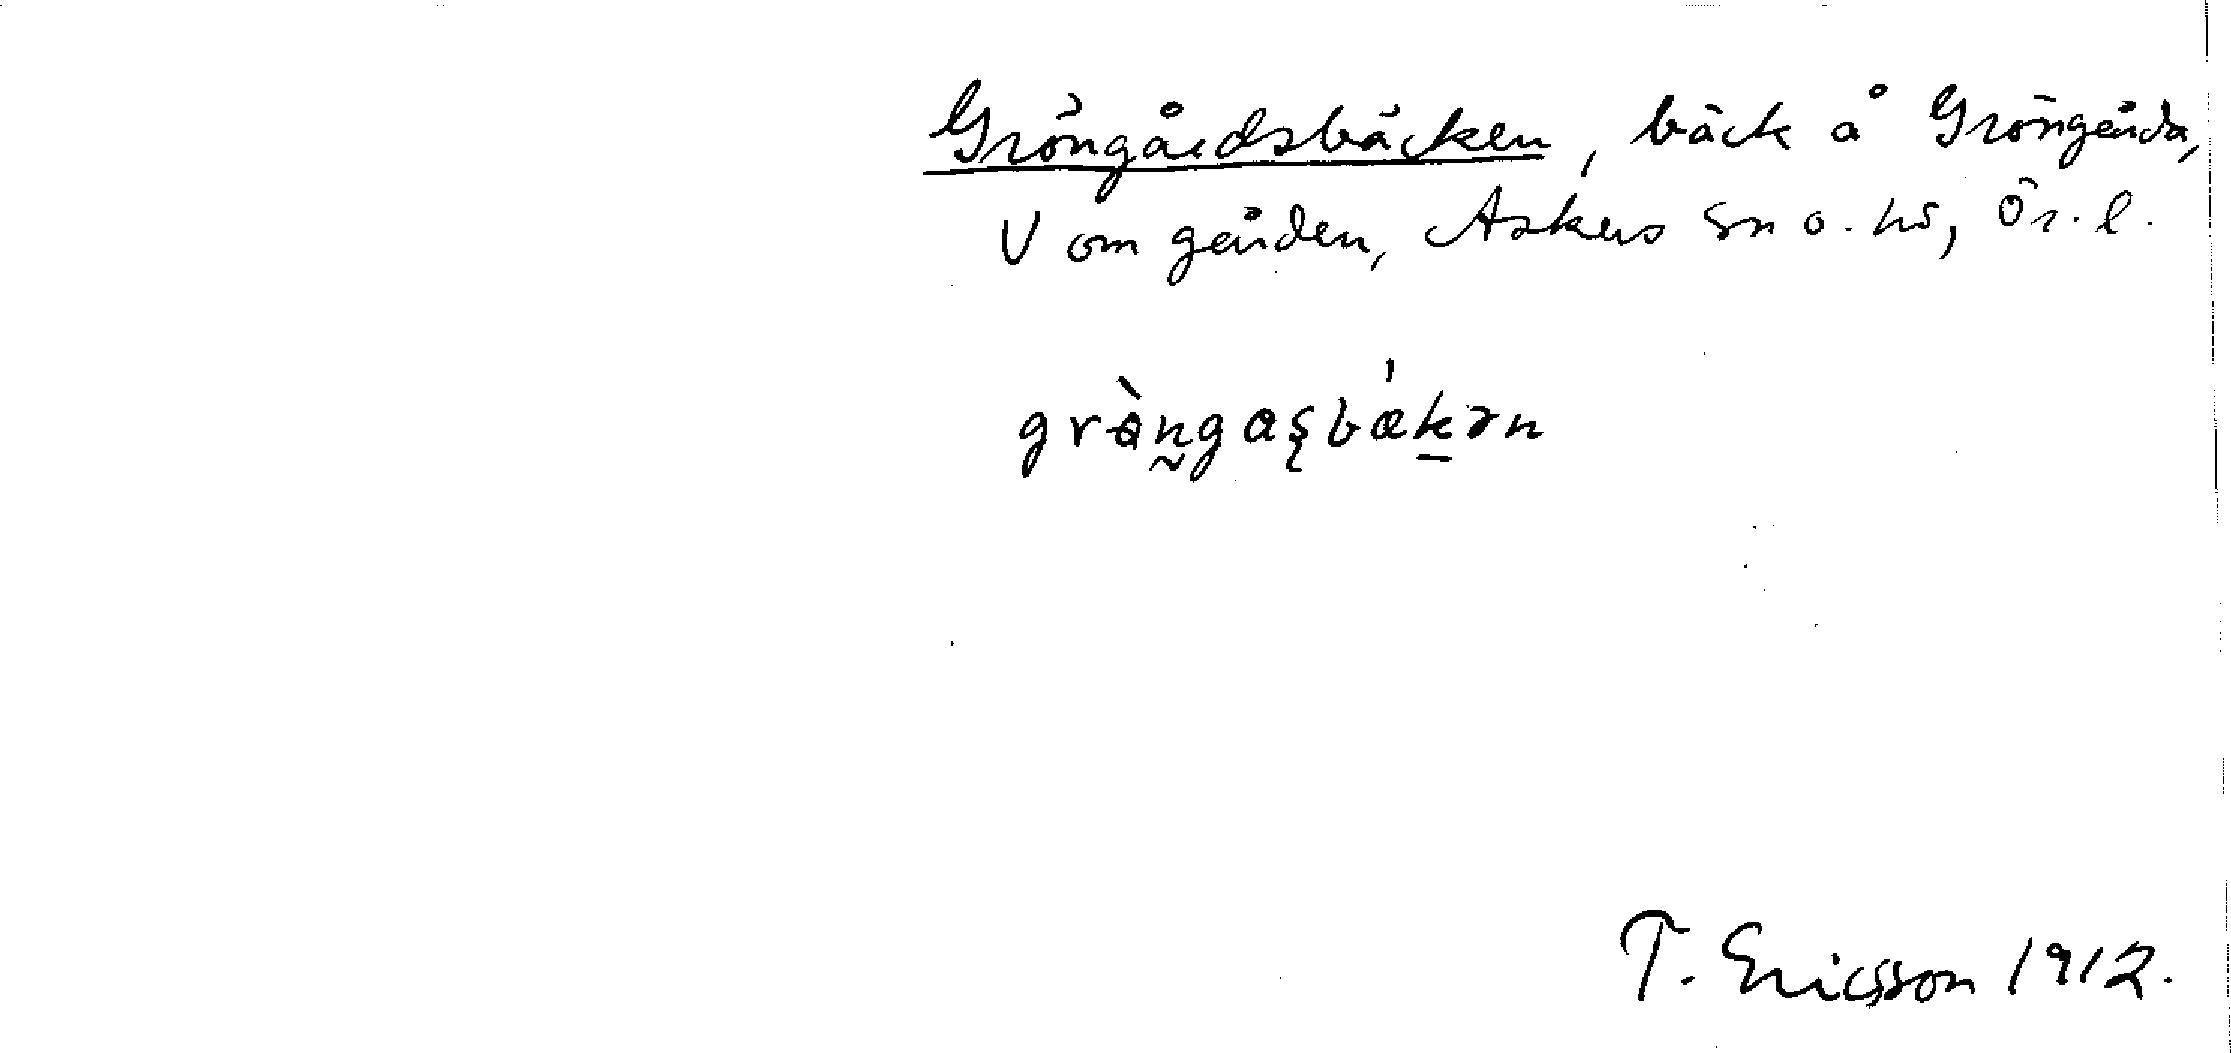 Gröngårdsbäcken, bäck å Gröngårda,
V om gården, Askers sn o. hd, Ör. l.
grèn̰gaşbǽḵən
T. Ericsson 1912.